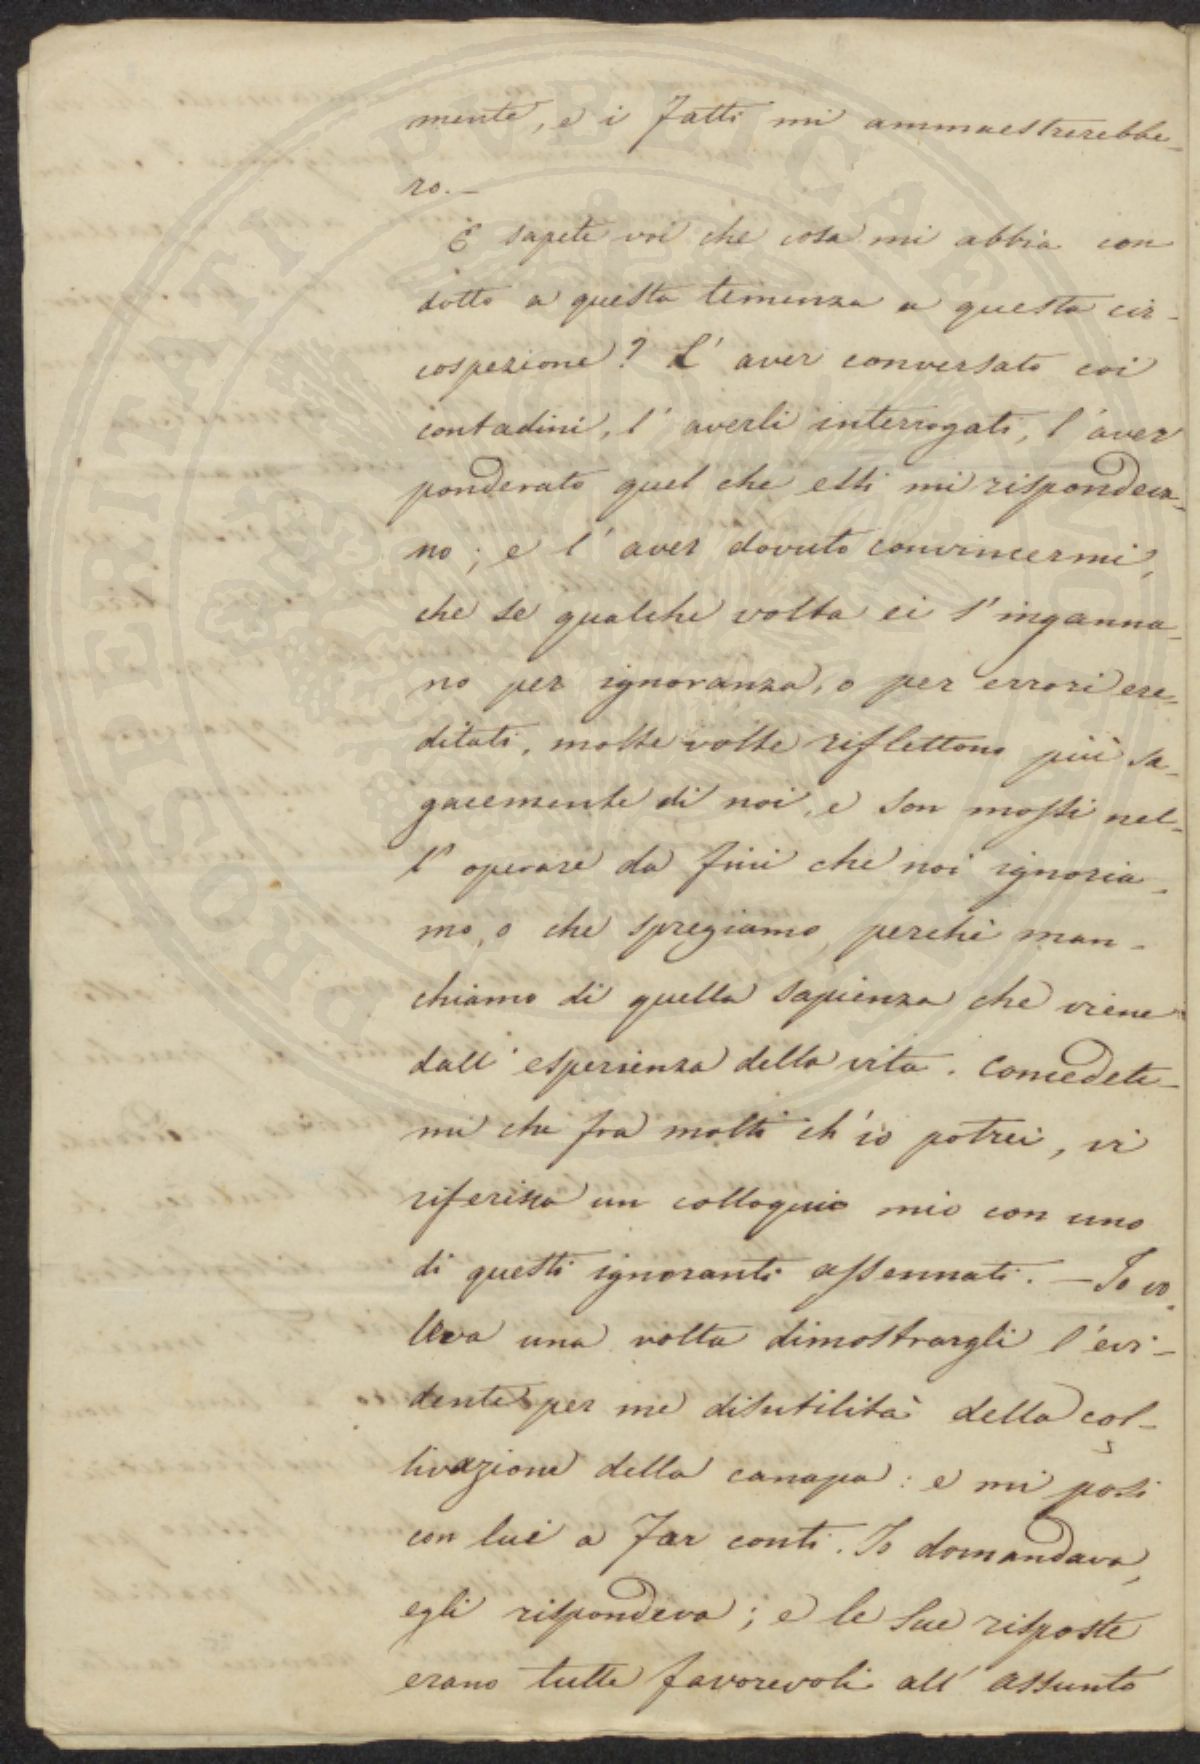 mente, e i fatti mi ammaestrerebbe-
ro. —
E sapete voi che cosa mi abbia con
dotto a questa temenza a questa cir-
cospezione? L' aver conversato coi
contadini, l' averli interrogati, l' aver
ponderato quel che essi mi rispondeva-
no; e l' aver dovuto convincermi,
che se qualche volta ei s' inganna-
no per ignoranza, o per errori ere-
ditati, molte volte riflettono più sa-
gacemente di noi, e son mossi nel-
l' operare da fini che noi ignoria-
mo, o che spregiamo, perchè man-
chiamo di quella sapienza che viene
dall' esperienza della vita. Concedete-
mi che fra molti ch' io potrei, vi
riferisca un colloquio mio con uno
di questi ignoranti assennati. — Io vo-
leva una volta dimostrargli l' evi-
dente per me disutilità della col-
tivazione della canapa: e mi posi
con lui a far conti. Io domandava,
egli rispondeva; e le sue risposte
erano tutte favorevoli all' assunto
PROSPERITATI PUBLICAE